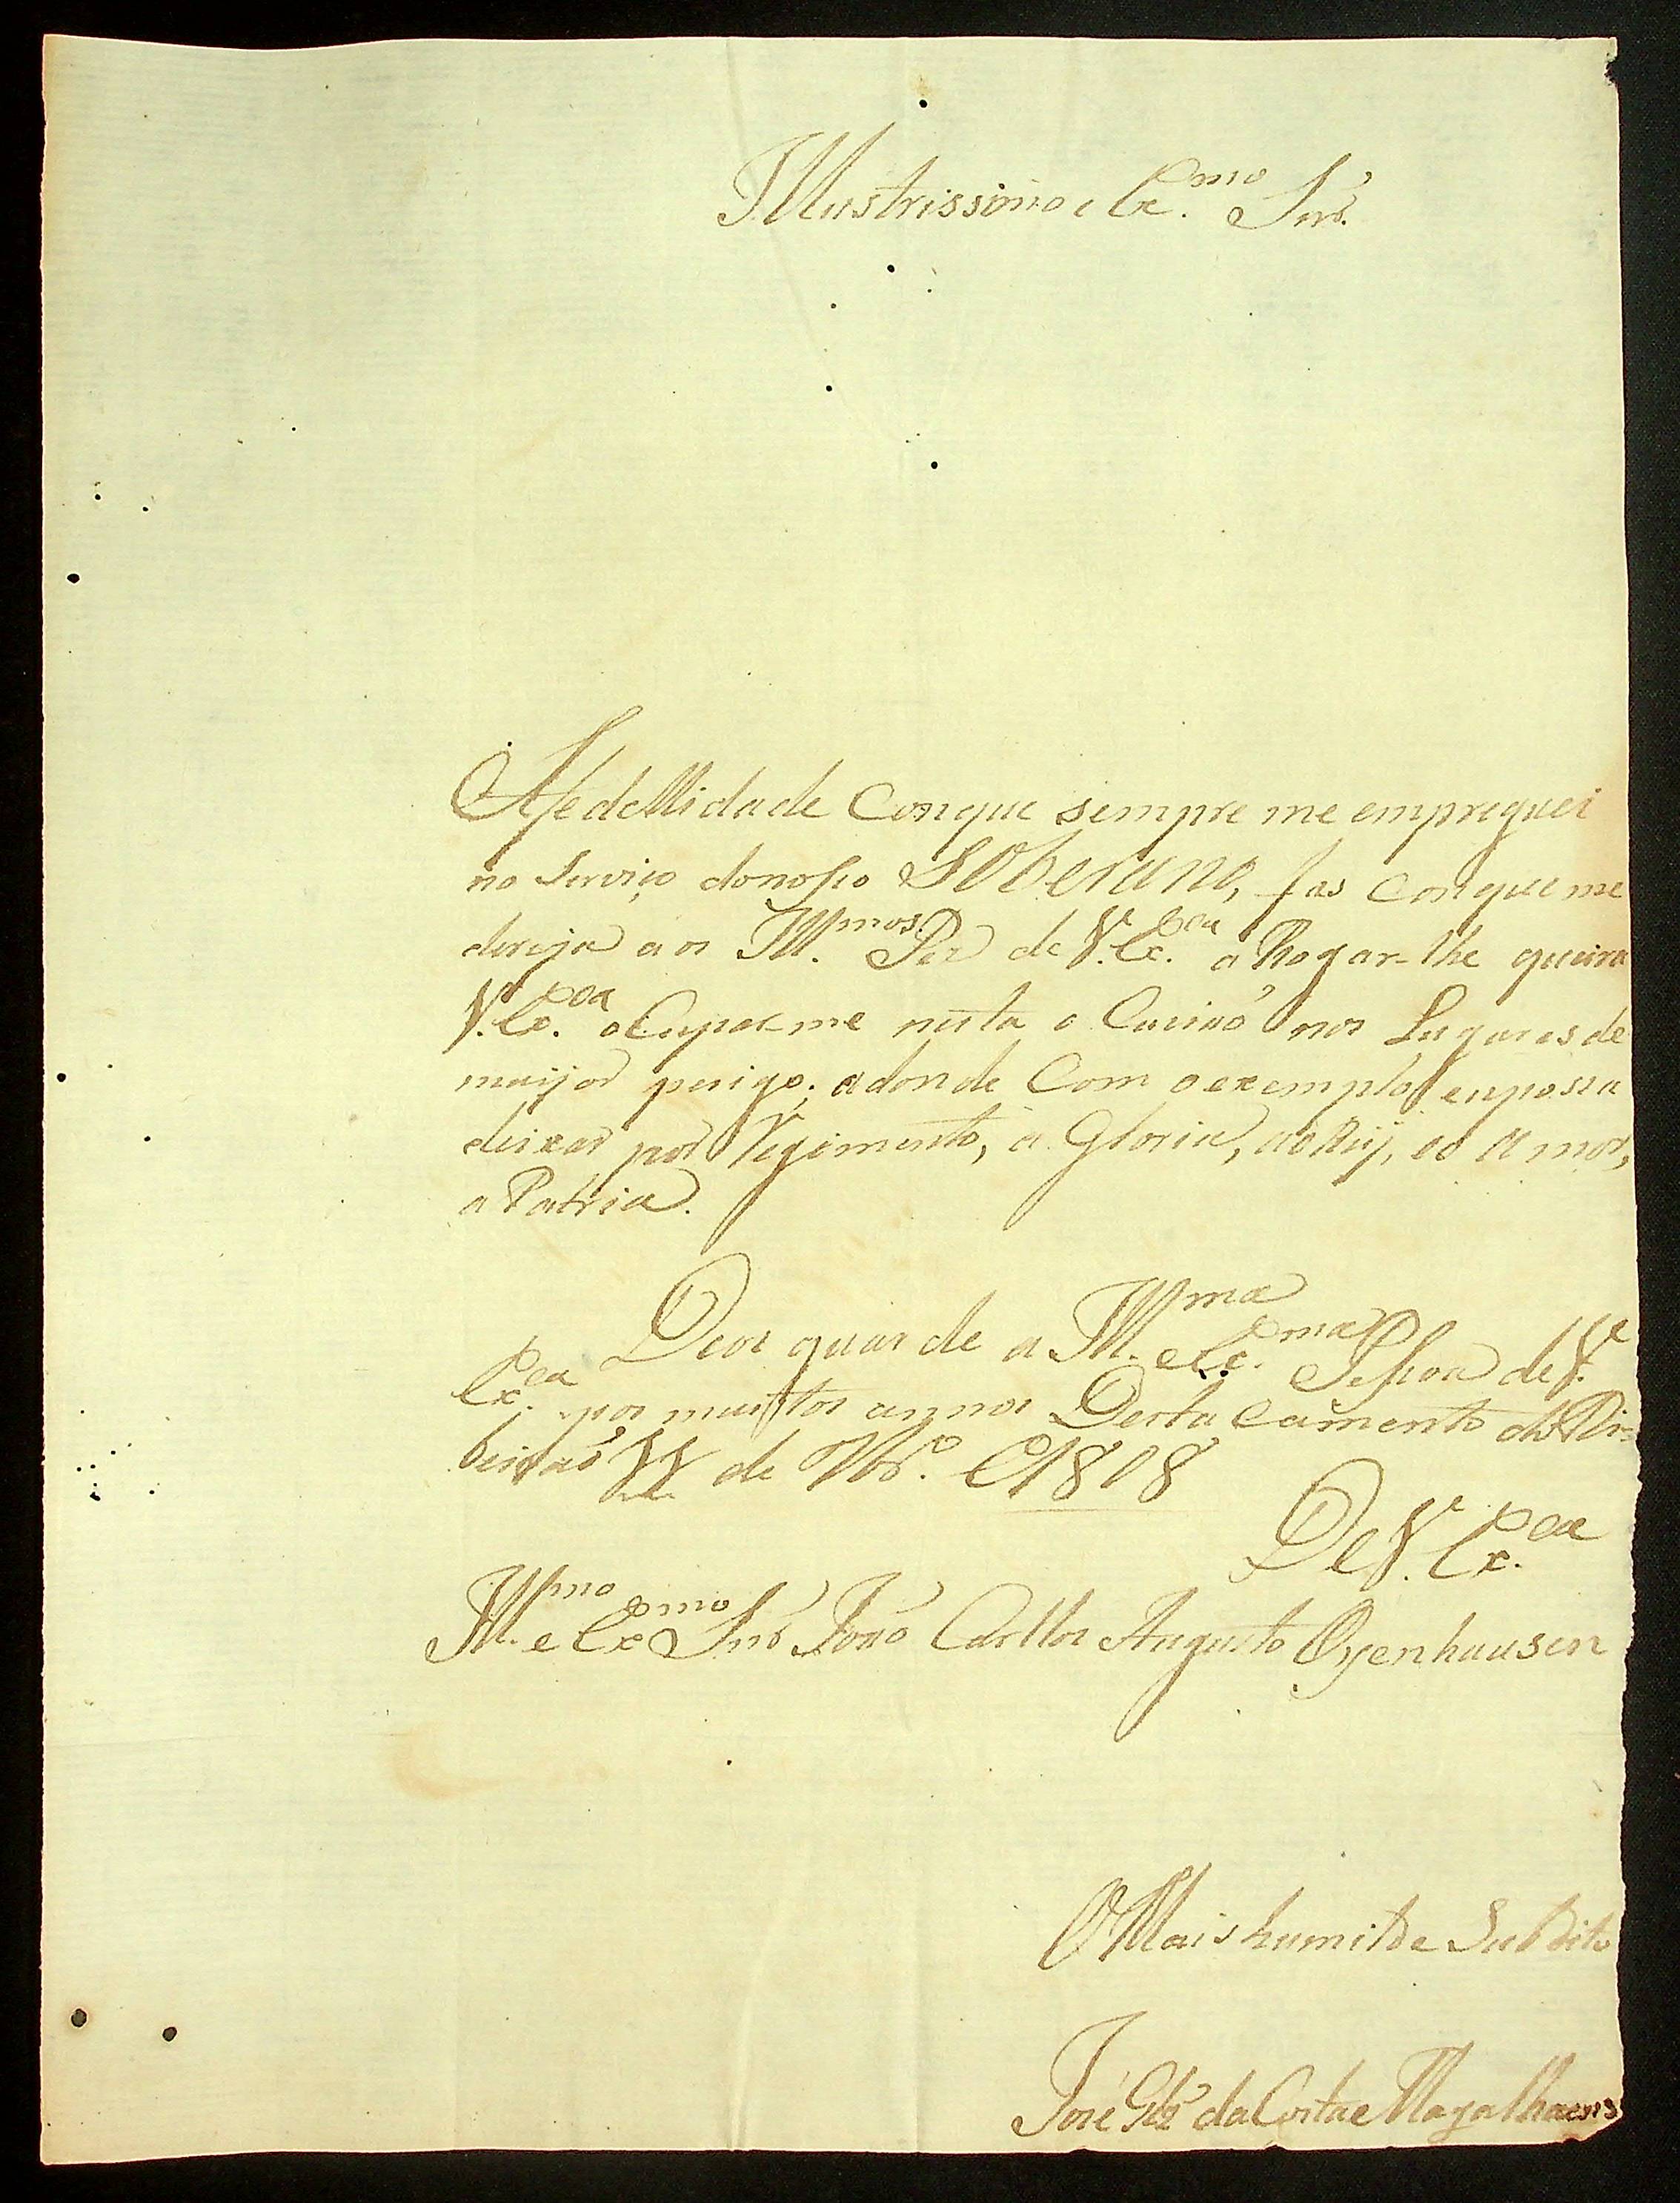 Illustrissimo e Ex.mo Snr.
A fedellidade Conque sempre me empreguei
no Serviço donosso SOBerano, fas Conque me
dereja aos Ill.mos Pez de V.Ex.cia a Rogar-lhe queira
V.Ex.cia oCupar me nesta oCazião nos Lugares de
maijor perigo; adonde Com o exemplo, eu possa
deixar por Regimento, a Gloria, ao Rij, eo Amor,
a Patria.
Deos guarde a Ill.ma e Ex.ma Pessoa de V.
Ex.cia por muitos annos Desta Camento do Ri=
beirão de Nbr.o 1808
De V. Ex.cia
Ill.mo e Ex.mo Snr João Carllos Augusto Oyenhausen
O Mais humilde Subdito
José da Costa e Magalhaens